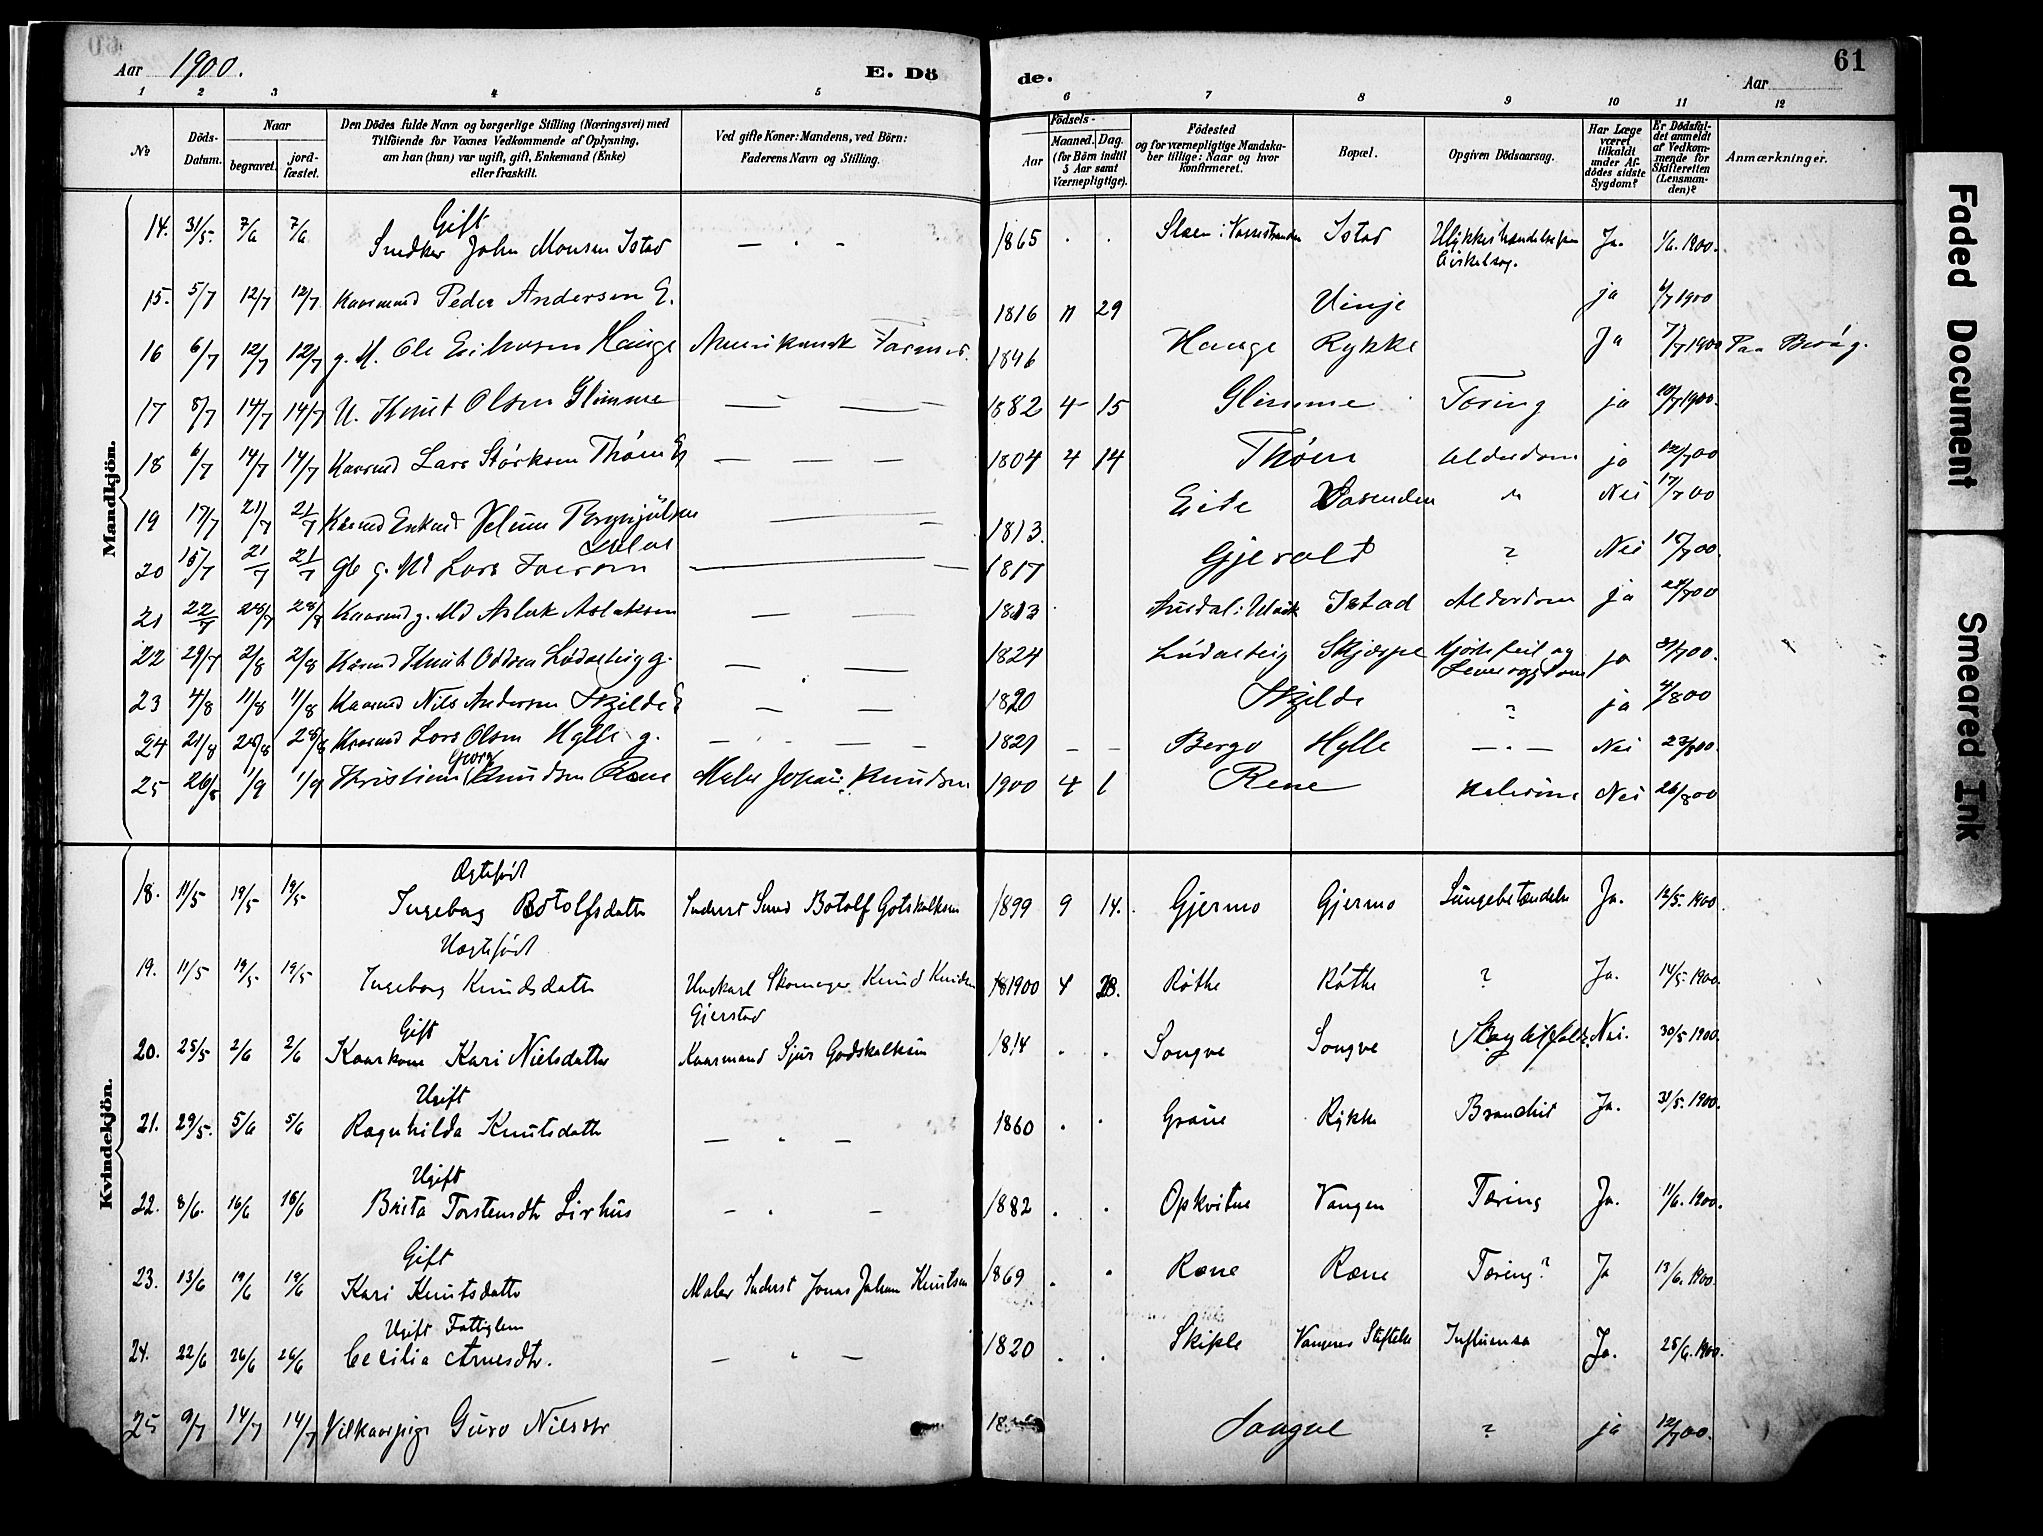 Aar 1900.
E. Dö
de.
Aar
61
1 2 3 4 5 6 7 8 9 10 11 12
№
Döds-
Datum.
Naar
begravet.
jord-
fæstet.
Den Dödes fulde Navn og borgerlige Stilling (Næringsvei) med
Tilföiende for Voxnes Vedkommende af Oplysning,
om han (hun) var ugift, gift, Enkemand (Enke)
eller fraskilt.
Ved gifte Koner: Mandens, ved Börn:
Faderens Navn og Stilling.
Födsels-
Aar
Maaned. Dag.
(for Börn indtil
5 Aar samt
Værnepligtige).
Födested
og for værnepligtige Mandska-
ber tillige: Naar og hvor
konfirmeret.
Bopæl.
Opgiven Dödsaarsag.
Har Læge
været
tilkaldt
under Af-
dödes sidste
Sygdom?
Er Dödsfal-
det anmeldt
af Vedkom-
mende for
Skifteretten
(Lensman-
den)?
Anmærkninger.
Mandkjön.
Gift
14. 31/5. 7/6 7/6 Snedker John Monsen Istad — . — 1865 . . Istad Ja. 1/6. 1900.
15. 5/7 12/7 12/7 Kaarmand Peder Andersen E. 1816 11 29 Vinje ja 1900
16 6/7 12/7 12/7 g. M. Ole Eriksen Hauge Amerikansk Farmer. 1846 Hauge Rykke Ja 7/7 1900 Paa Besøg.
17 8/7 14/7 14/7 U. Knut Olsen Glimme — — — 1882 4 15 Glimme Tæring ja 10/7 1900.
18 6/7 14/7 14/7 Kaarmd Lars Størksen Thøen — — — 1804 4 14 Thøen Alderdom ja 12/7 00
19 17/7 21/7 21/7 1813. Eide Nei 17/7 00
20 15/7 21/7 21/7 Lars 1817 Gjerald ? Nei 00.
21 22/7 28/7 28/7 Kaarmd g. Md Aslak Aslaksen — — 1813 Istad Alderdom ja 00
22 29/7 2/8 2/8 Kaarmd Knut Oddsen g. — — 1824 Hjertefeil og
ja 31/7 00.
23 4/8 11/8 11/8 Kaarmd Nils Andersen Skjelde E — — 1820 Skjelde ? ja 4/8 00
24 21/8 28/8 28/8 Kaarmd Lars Olsen Hylle g. — — — — 1821 — — Bergo Hylle — . — Nei
Georg
25 26/8 1/9 1/9 Kristian Knudsen Rene Maler Johan Knudsen 1900 4 1 Rene Nei 26/8 00
Kvindekjön.
Ægtefødt
18. 11/5 19/5 19/5 Ingeborg Botolfsdatter Inderst Smed Botolf Gotskalksen 1899 9 14. Gjermo Gjermo Lungebetændelse Ja. 12/5. 1900.
Uægtefødt
19. 11/5 19/5 19/5 Ingeborg Knudsdatter Ungkarl Skomager Knud Knudsen
Gjerstad
1900 4 28. Røthe Røthe ? Ja. 14/5. 1900.
Gift
20. 25/5 2/6 2/6 Kaarkone Kari Nielsdatter Kaarmand Sjur Godskalksen 1814 . . Songve Songve Nei. 30/5 1900.
Ugift
21. 29/5. 5/6 5/6 Ragnhilda Knutsdatter — . — 1860 . . Graue Rykke Bronchit Ja. 31/5. 1900.
Ugift
22. 8/6. 16/6 16/6 Brita Torstensdtr Lirhus — . — 1882 . . Opkvitne Vangen Tæring Ja. 11/6. 1900.
Gift
23. 13/6 19/6 19/6 Kari Knutsdatter Maler Inderst Jonas Johan Knutsen 1869 . . Rene Rene Tæring? Ja 13/6. 1900.
Ugift Fattiglem
24. 22/6 26/6 26/6 Cecilia Arnesdtr. — . — 1820 . . Skiple Vangens Stiftelse Influensa Ja. 25/6. 1900.
25 9/7 14/7 14/7 Guro Nilsdtr 18 Songve ? ja 12/7 00.
Faded Document
Smeared Ink